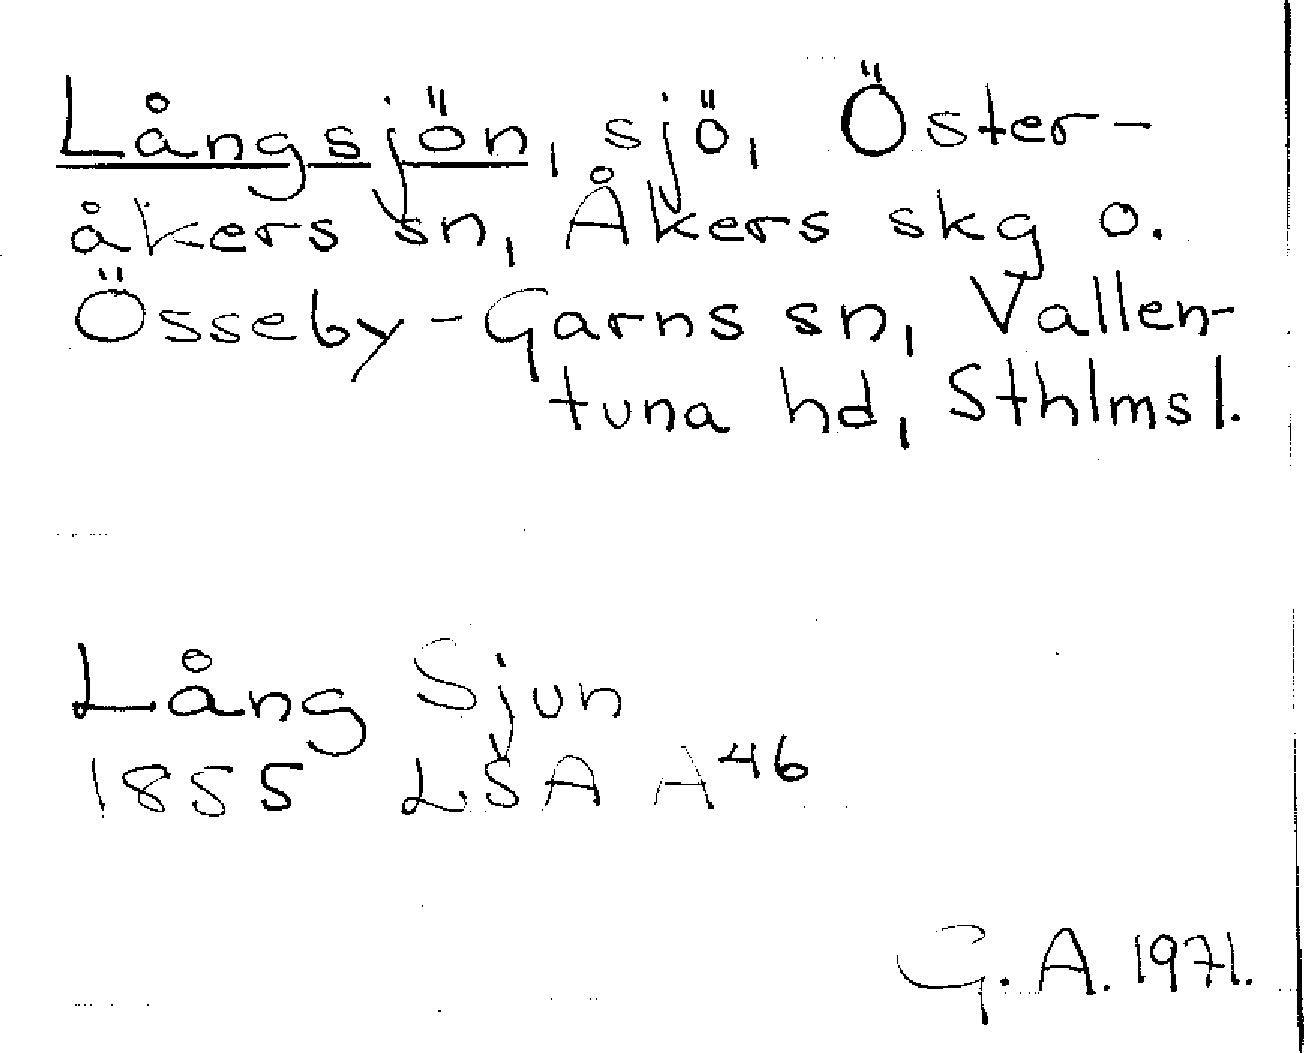 Långsjön, sjö, Öster-
åkers sn, Åkers skg o.
Össeby-Garns sn, Vallen-
tuna hd, Sthlms l.
Lång Sjun
1855 LSA A46
G. A. 1971.